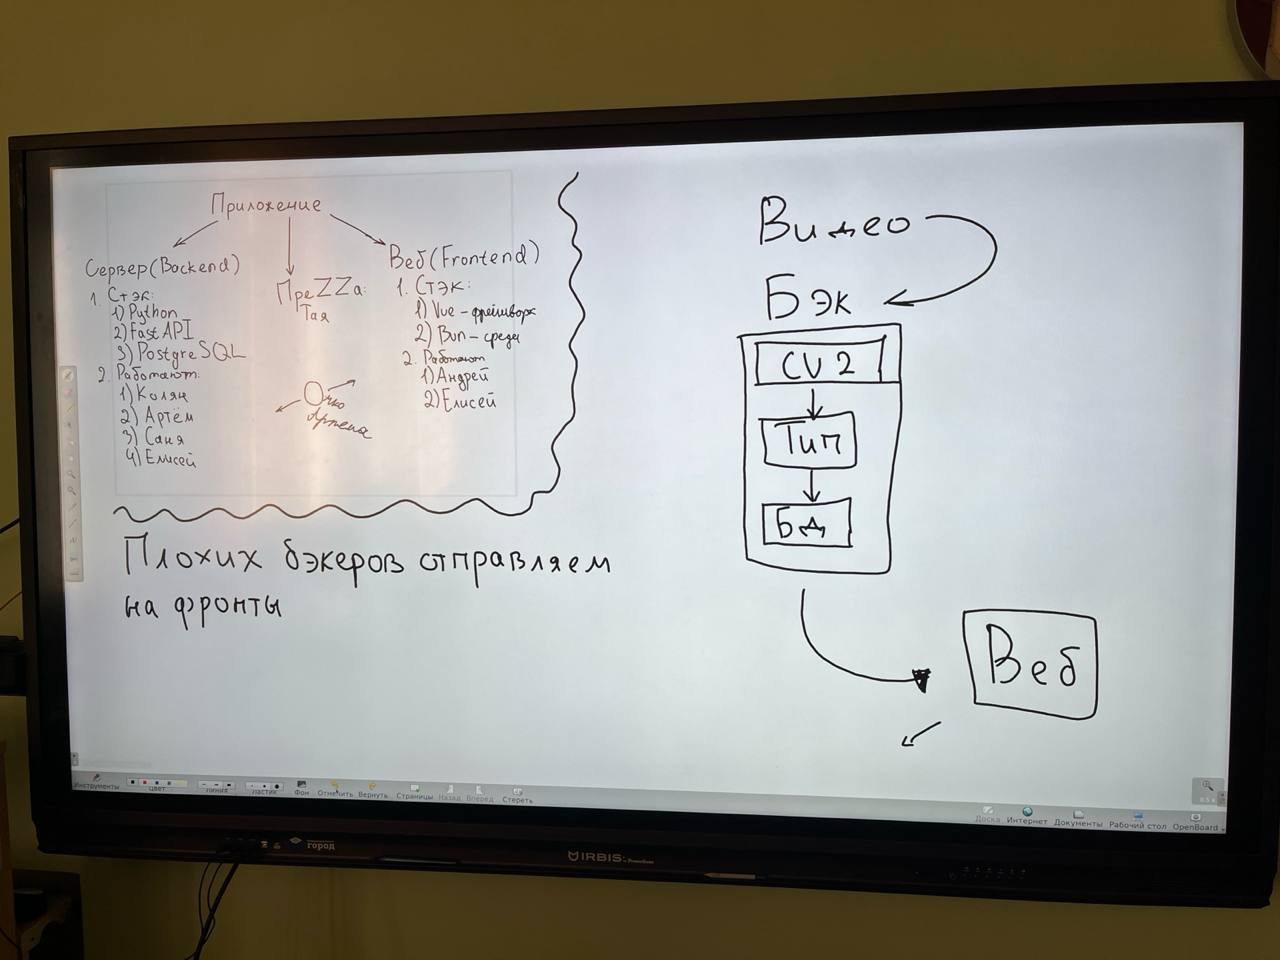 Приложение
Сервер(Backend)
1. Стэк:
1) Python
2) FastAPI
3) PostgreSQL
2. Работают:
1) Колян
2) Артём
3) Саня
4) Елисей
ПреZZа:
Тая
Очко
Артема
Веб(Frontend)
1. Стэк:
1) Vue - фреймворк
2) Bun - среда
2. Работают
1) Андрей
2) Елисей
Плохих бэкеров отправляем
на фронты
Видео
Бэк
CV2
Тип
Бд
Веб
Инструменты
Цвет
Линия
Ластик
Фон
Отменить
Вернуть
Страницы
Назад
Вперед
Стереть
Доска
Интернет
Документы
Рабочий стол
OpenBoard
город
IRBIS